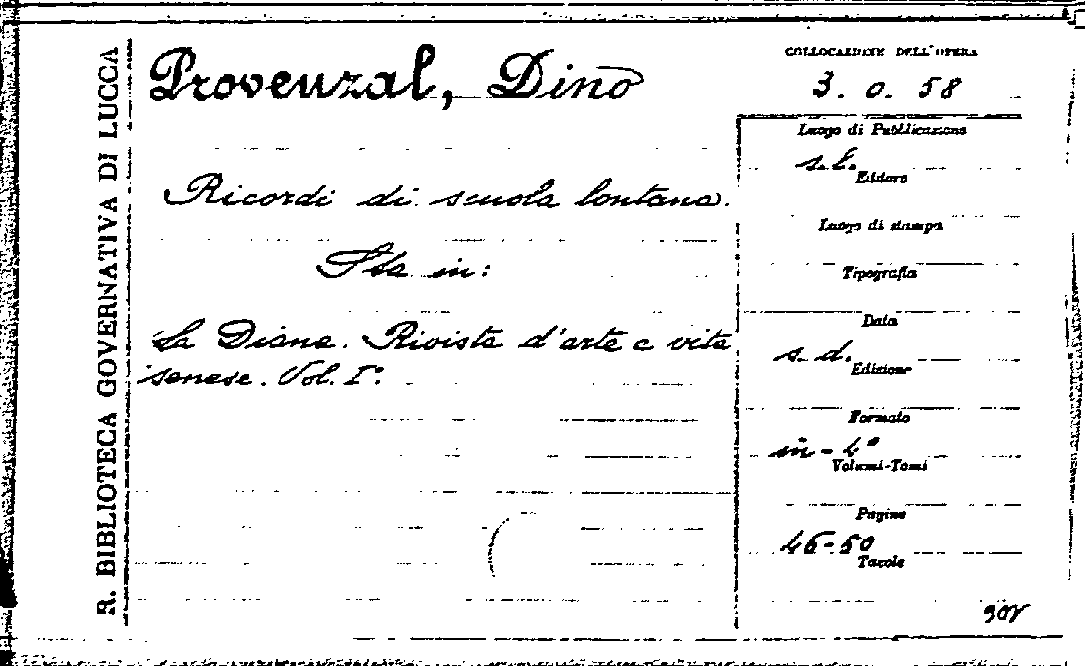 R. BIBLIOTECA GOVERNATIVA DI LUCCA
Provenzal, Dino
Ricordi di scuola lontana.
Sta in:
La Diana. Rivista d'arte e vita
senese. Vol. I°.
COLLOCAZIONE DELL'OPERA
3. 0. 58
Luogo di Pubblicazione
s. l.
Editore
Luogo di stampa
Tipografia
Data
s. d.
Edizione
Formato
in-4°
Volumi-Tomi
Pagine
46-50
Tavole